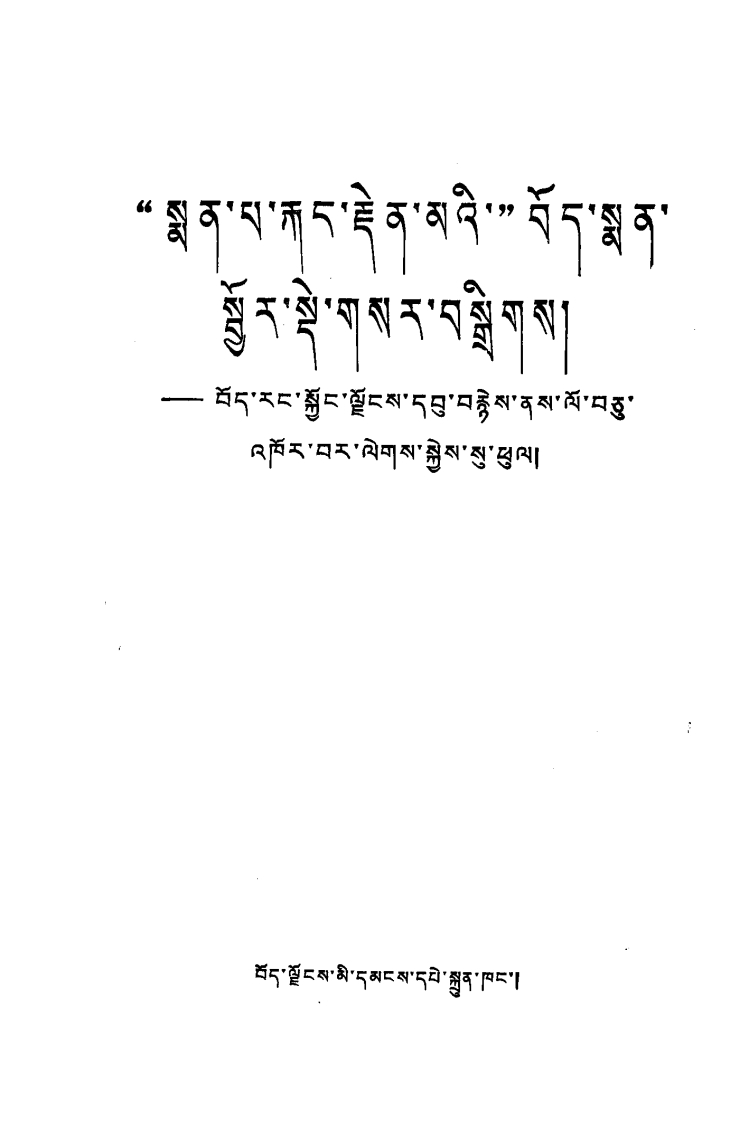 “སྨན་པ་རྐང་རྗེན་མའི་”བོད་སྨན་
སྦྱོར་སྡེ་གསར་བསྒྲིགས།
—— བོད་རང་སྐྱོང་ལྗོངས་དབུ་བརྙེས་ནས་ལོ་བཅུ་
འཁོར་བར་ལེགས་སྐྱེས་སུ་ཕུལ།
བོད་ལྗོངས་མི་དམངས་དཔེ་སྐྲུན་ཁང་།